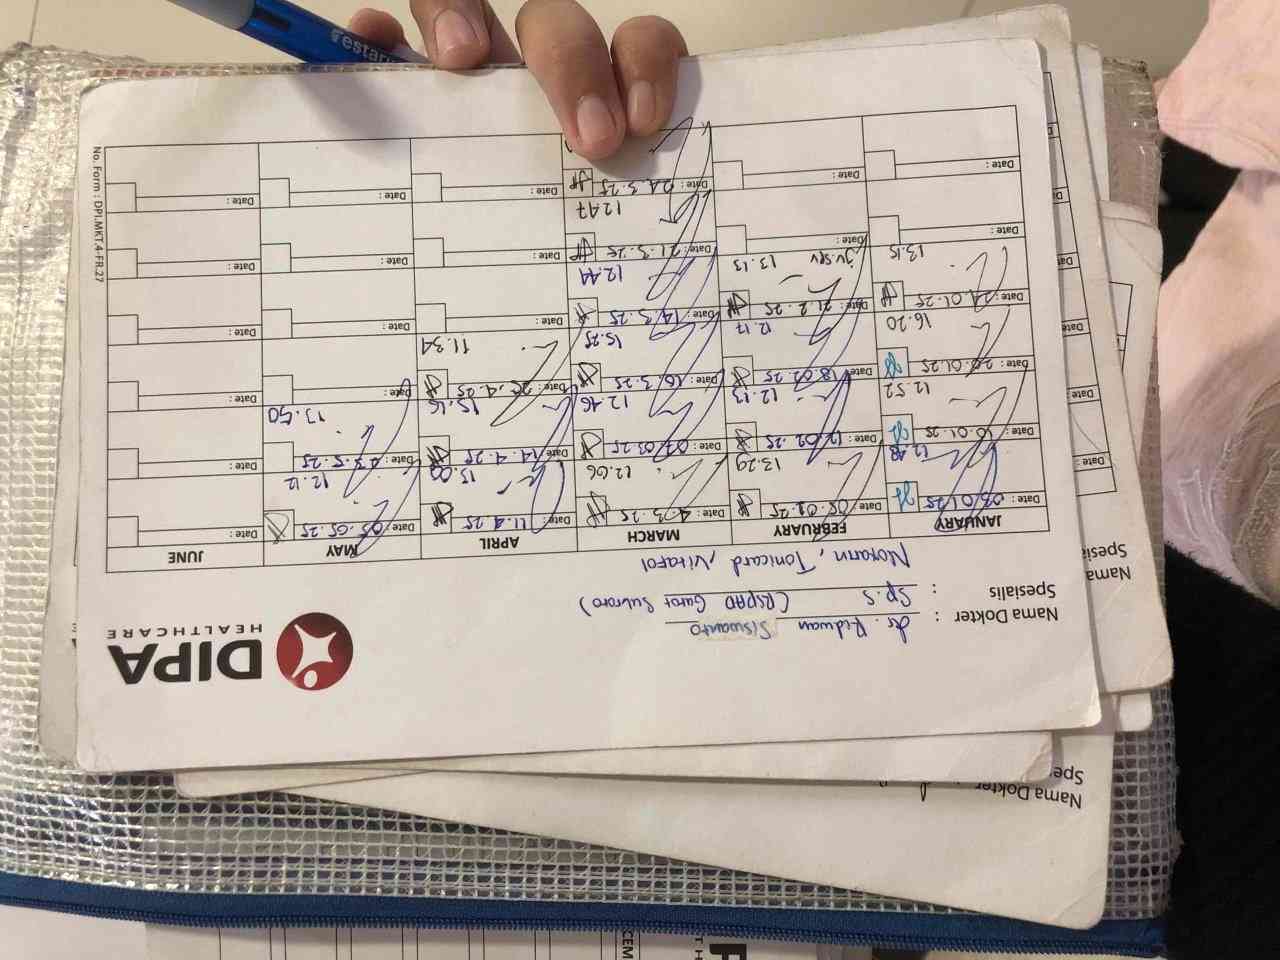 DIPA
HEALTHCARE
Nama Dokter : dr. Ridwan Siswanto
Spesialis : Sp.S (RSPAD Gatot Subroto)
Tonicard, Vitafol
JANUARY FEBRUARY MARCH APRIL MAY JUNE
Date : 03.01.25 Date : 05.02.25 Date : 4.3.25 Date : 11.4.25 Date : 05.05.25 Date :
12.48 13.29 12.06 15.09 12.12
Date : 10.01.25 Date : 12.02.25 Date : 07.03.25 Date : 14.4.25 Date : 23.5.25 Date :
12.52 12.13 12.46 15.16 13.50
Date : 20.01.25 Date : 18.02.25 Date : 10.3.25 Date : 25.4.25 Date : Date :
16.20 12.17 15.25 11.34
Date : 24.01.25 Date : 21.2.25 Date : 14.3.25 Date : Date : Date :
13.15 13.13 12.44
Date : Date : Date : 21.3.25 Date : Date : Date :
12.47
Date : Date : Date : 24.3.25 Date : Date : Date :
No. Form : DPI.MKT.4-FR.27
Nama
Spesia
Nama Dokter
Spe
Date :
Date :
Date :
estar
CEM